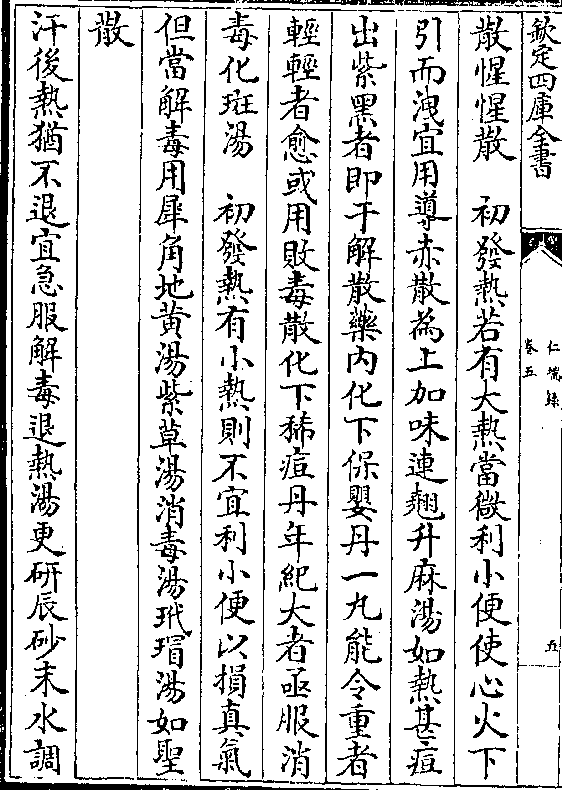 欽定四庫全書
仁端錄
卷五
五
散惺惺散　初發熱若有大熱當微利小便使心火下
引而洩宜用導赤散為上加味連翹升麻湯如熱甚痘
出紫黑者即于解散藥內化下保嬰丹一丸能令重者
輕輕者愈或用敗毒散化下稀痘丹年紀大者亟服消
毒化斑湯　初發熱有小熱則不宜利小便以損真氣
但當解毒用犀角地黃湯紫草湯消毒湯玳瑁湯如聖
散
汗後熱猶不退宜急服解毒退熱湯更研辰砂末水調